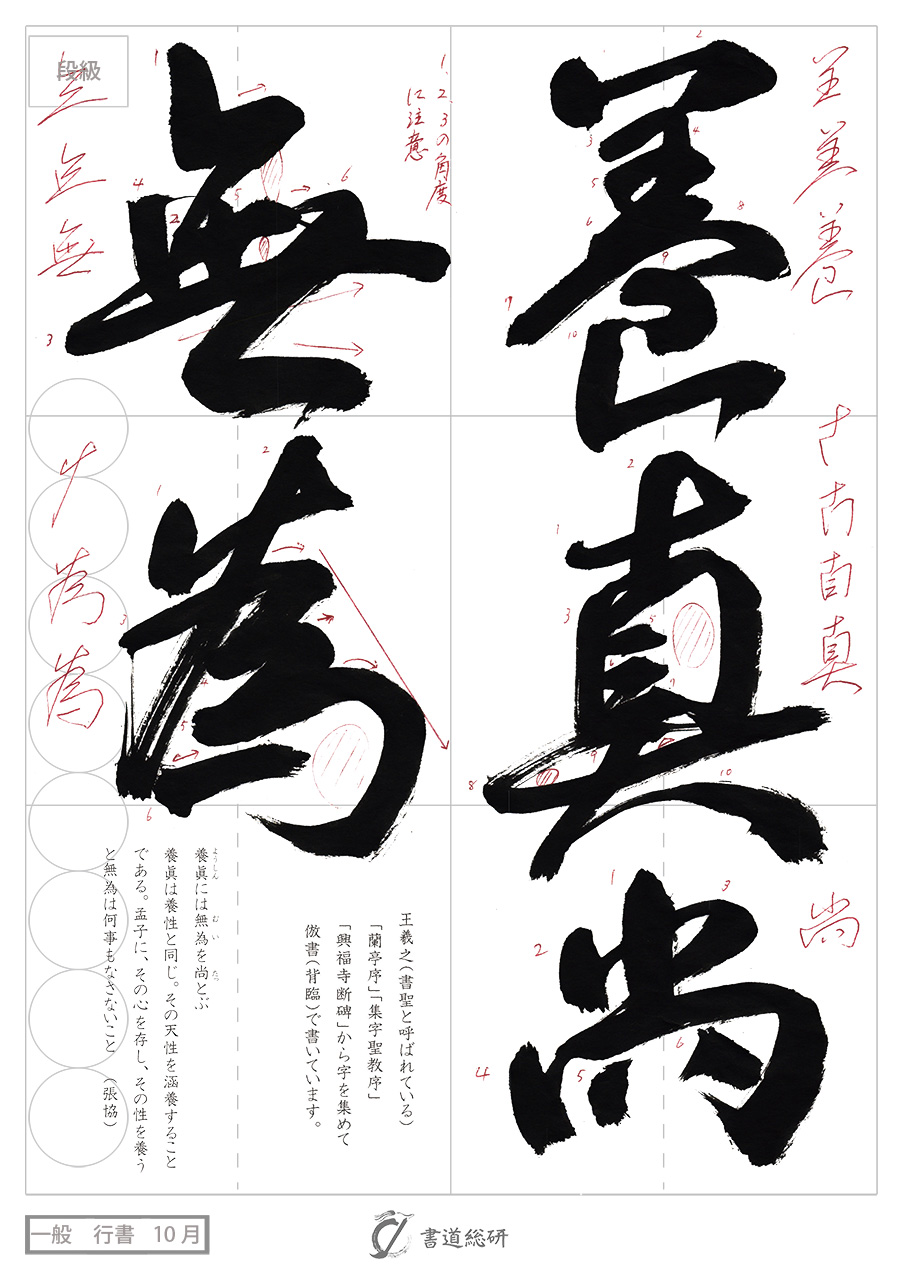 養真尚
無為
段級
1、2、3の角度
に注意
王羲之(書聖と呼ばれている)
「蘭亭序」「集字聖教序」
「興福寺断碑」から字を集めて
倣書(背臨)で書いています。
養眞には無為を尚とぶ
ようしん むい たっ
養眞は養性と同じ。その天性を涵養すること
である。孟子に、その心を存し、その性を養う
と無為は何事もなさないこと (張協)
一般 行書 10月
書道総研